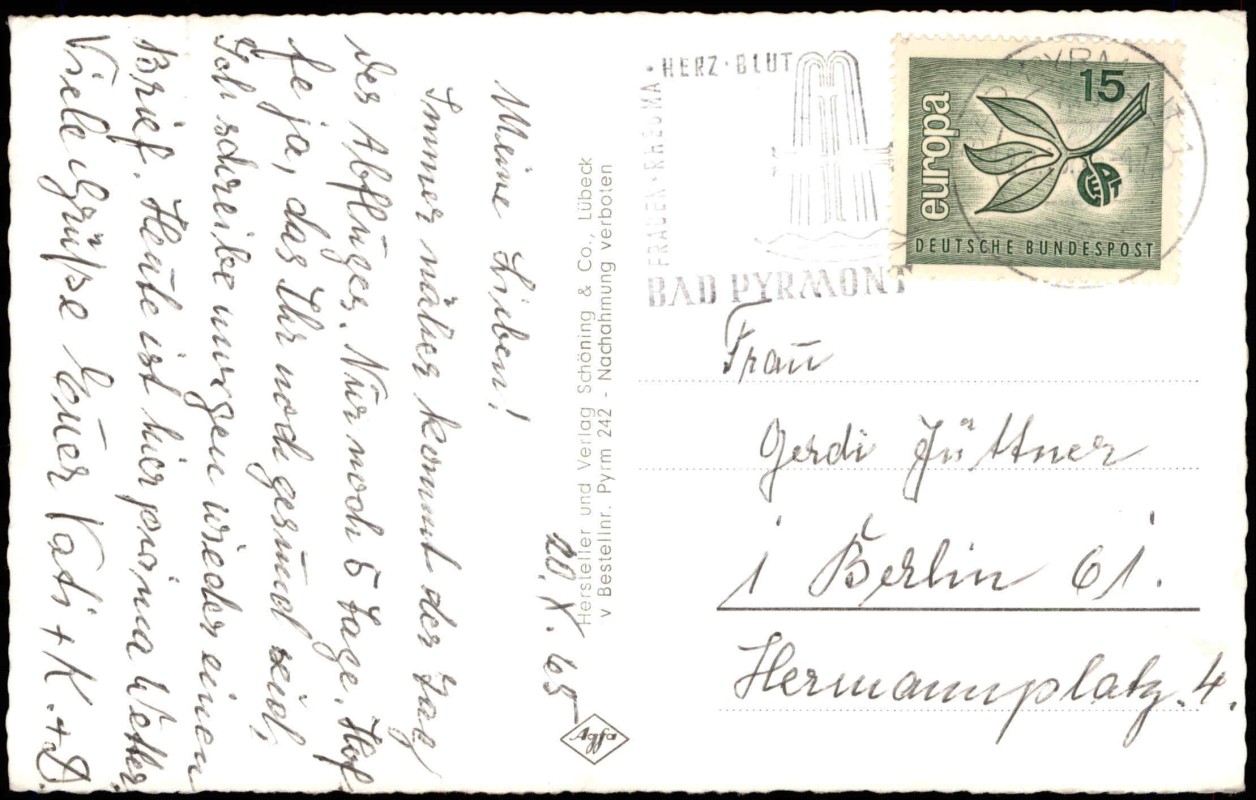 20. X. 65
Meine Lieben!
Immer näher kommt der Tag
des Abfluges. Nur noch 5 Tage. Hof-
fe ja, das Ihr noch gesund seid,
Ich schreibe morgen wieder einen
Brief. Heute ist hier prima Wetter.
Viele Grüße Euer Vati + K. + D.
Hersteller und Verlag Schöning & Co., Lübeck
v Bestellnr. Pyrm 242 - Nachahmung verboten
Agfa
HERZ · BLUT
FRAUEN · RHEUMA
BAD PYRMONT
15
europa
CEPT
DEUTSCHE BUNDESPOST
Frau
Gerdi Jüttner
1 Berlin 61.
Hermannplatz. 4.